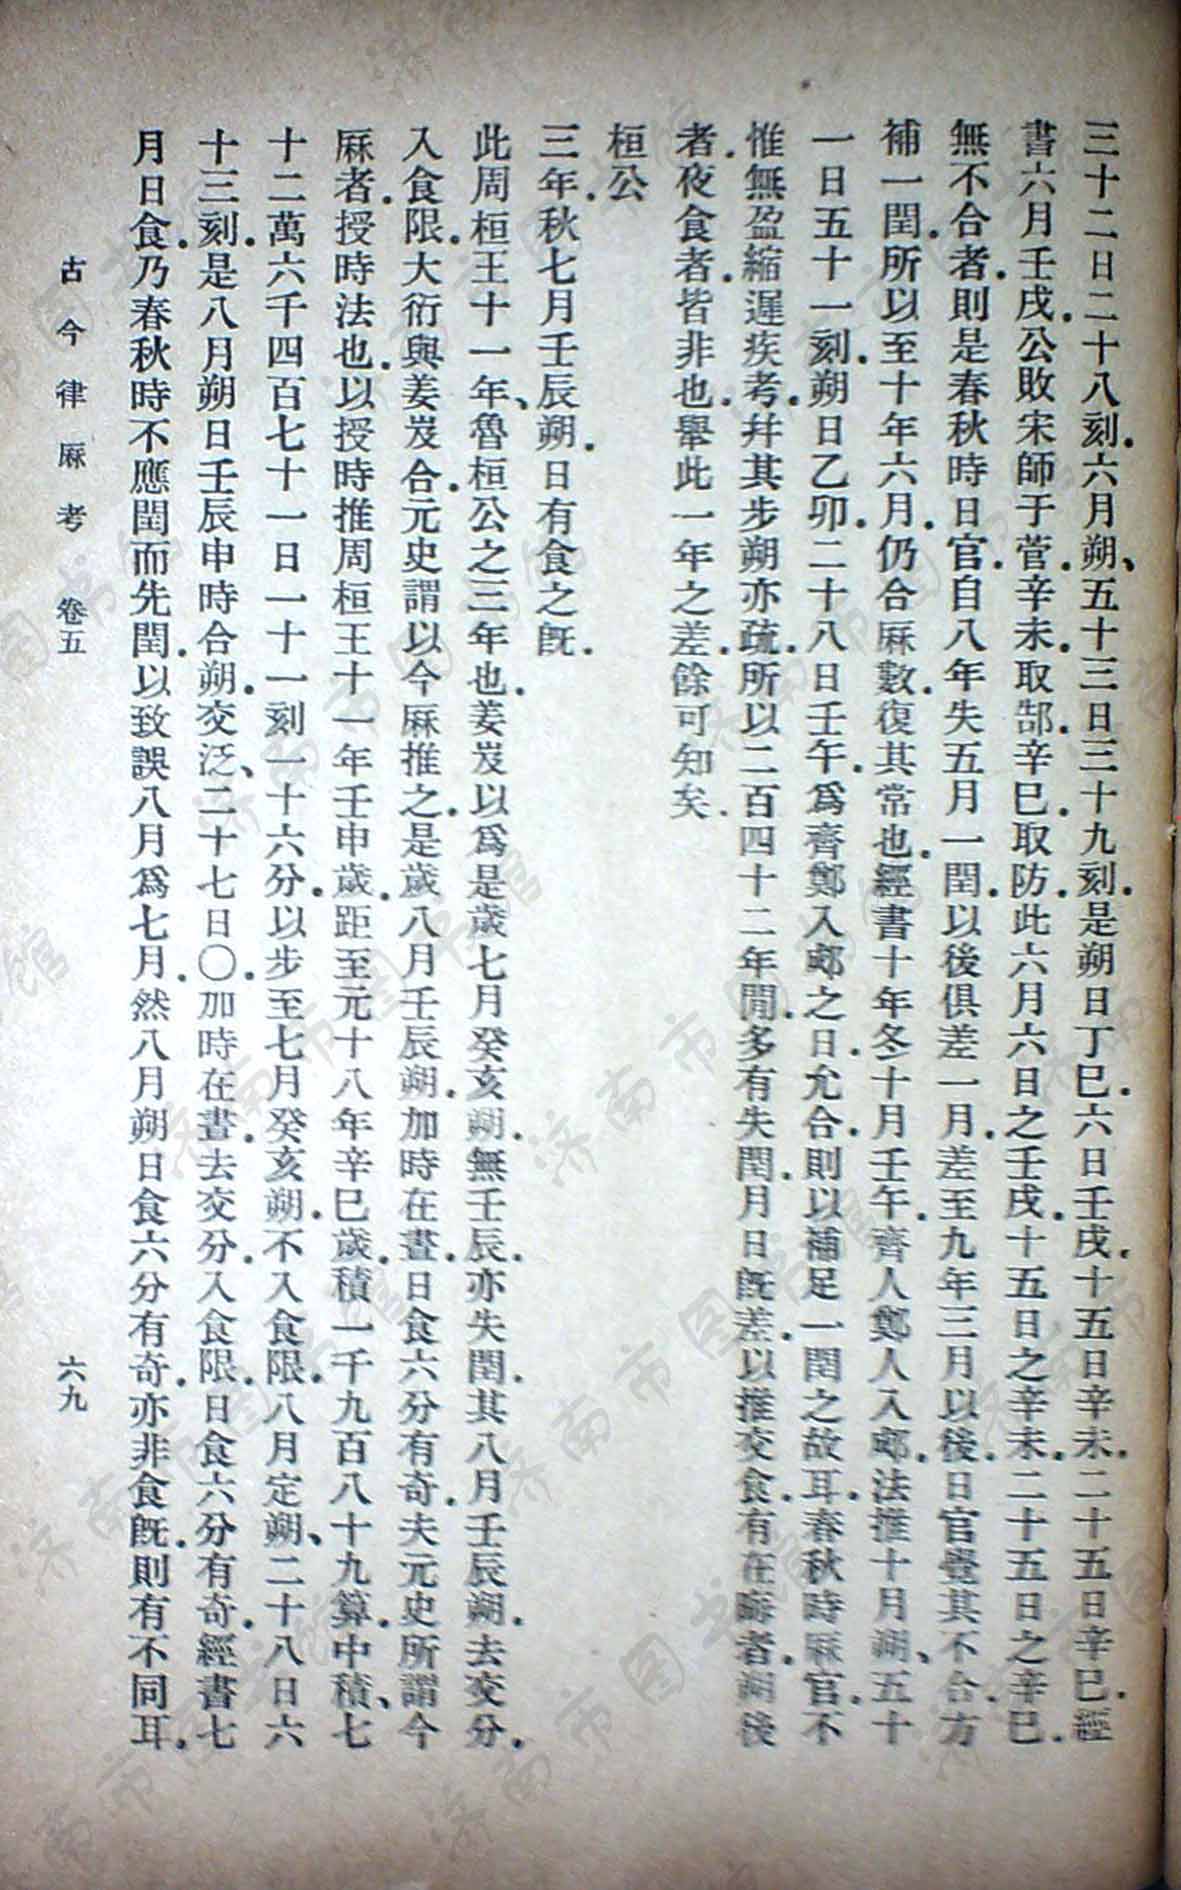 三十二日二十八刻．六月朔、五十三日三十九刻．是朔日丁巳．六日壬戌．十五日辛未．二十五日辛巳．經
書六月壬戌．公敗宋師于菅．辛未．取郜．辛巳．取防．此六月六日之壬戌．十五日之辛未．二十五日之辛巳．
無不合者．則是春秋時日官．自八年失五月一閏．以後俱差一月．差至九年三月以後．日官覺其不合．方
補一閏．所以至十年六月．仍合厤數．復其常也．經書十年冬．十月壬午．齊人鄭人入郕．法推十月朔、五十
一日五十一刻．朔日乙卯．二十八日壬午．爲齊鄭入郕之日．允合．則以補足一閏之故耳．春秋時厤官．不
惟無盈縮遲疾考．幷其步朔亦疏．所以二百四十二年閒．多有失閏．月日旣差．以推交食．有在晦者．朔後
者．夜食者．皆非也．舉此一年之差．餘可知矣．
桓公
三年．秋七月壬辰朔．日有食之旣．
此周桓王十一年、魯桓公之三年也．姜岌以爲是歲七月癸亥朔．無壬辰．亦失閏．其八月壬辰朔．去交分．
入食限．大衍與姜岌合．元史謂以今厤推之．是歲八月壬辰朔．加時在晝．日食六分有奇．夫元史所謂今
厤者．授時法也．以授時推周桓王十一年壬申歲．距至元十八年辛巳歲．積一千九百八十九算．中積、七
十二萬六千四百七十一日一十一刻一十六分．以步至七月癸亥朔．不入食限．八月定朔、二十八日六
十三刻．是八月朔日壬辰申時合朔．交泛、二十七日〇．加時在晝．去交分．入食限．日食六分有奇．經書七
月日食．乃春秋時不應閏而先閏．以致誤八月爲七月．然八月朔日食六分有奇．亦非食旣．則有不同耳．
古今律厤考　卷五　六九
济南市图书馆